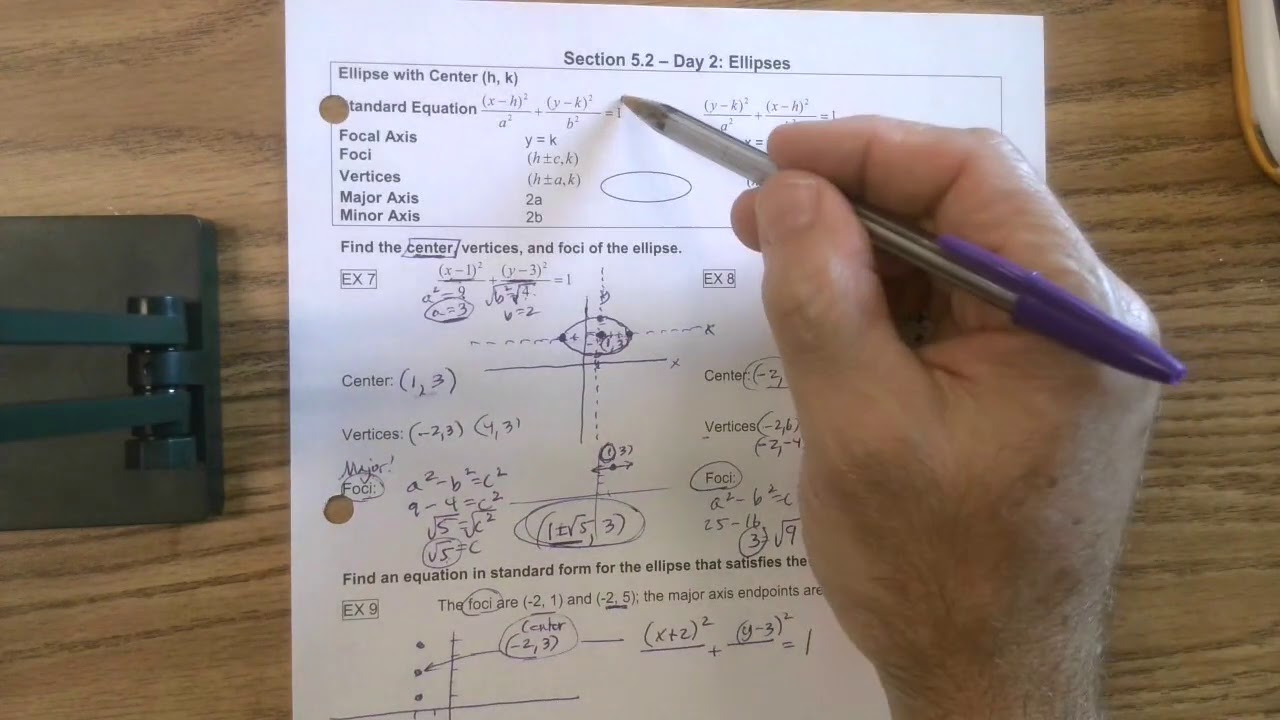 Section 5.2 – Day 2: Ellipses
Ellipse with Center (h, k)
Standard Equation (x−h)²/a² + (y−k)²/b² = 1 (y−k)²/a² + (x−h)² = 1
Focal Axis y = k x =
Foci (h±c,k)
Vertices (h±a,k)
Major Axis 2a
Minor Axis 2b
Find the center, vertices, and foci of the ellipse.
EX 7 (x−1)²/9 + (y−3)²/4 = 1 EX 8
a² √b² √4
a=3 b=2
x
(1,3)
x
Center: (1, 3) Center: (−2,
Vertices: (−2,3) (4,3) Vertices (−2,6)
(−2,−4
Major!
Foci: a²−b²=c² Foci:
9−4=c² a²−b²=c
√5=√c² (1±√5, 3) 25−16
√5=c 3=√9
Find an equation in standard form for the ellipse that satisfies the
EX 9 The foci are (-2, 1) and (-2, 5); the major axis endpoints are
Center
(−2,3) (x+2)² + (y−3)² = 1